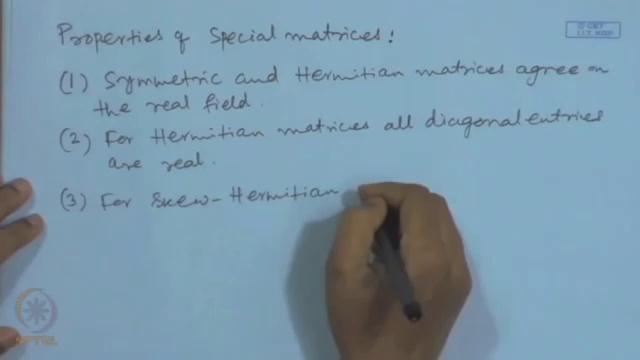 Properties of Special matrices:
© CET
I.I.T. KGP
(1) Symmetric and Hermitian matrices agree on
the real field.
(2) For Hermitian matrices all diagonal entries
are real.
(3) For Skew-Hermitian
NPTEL